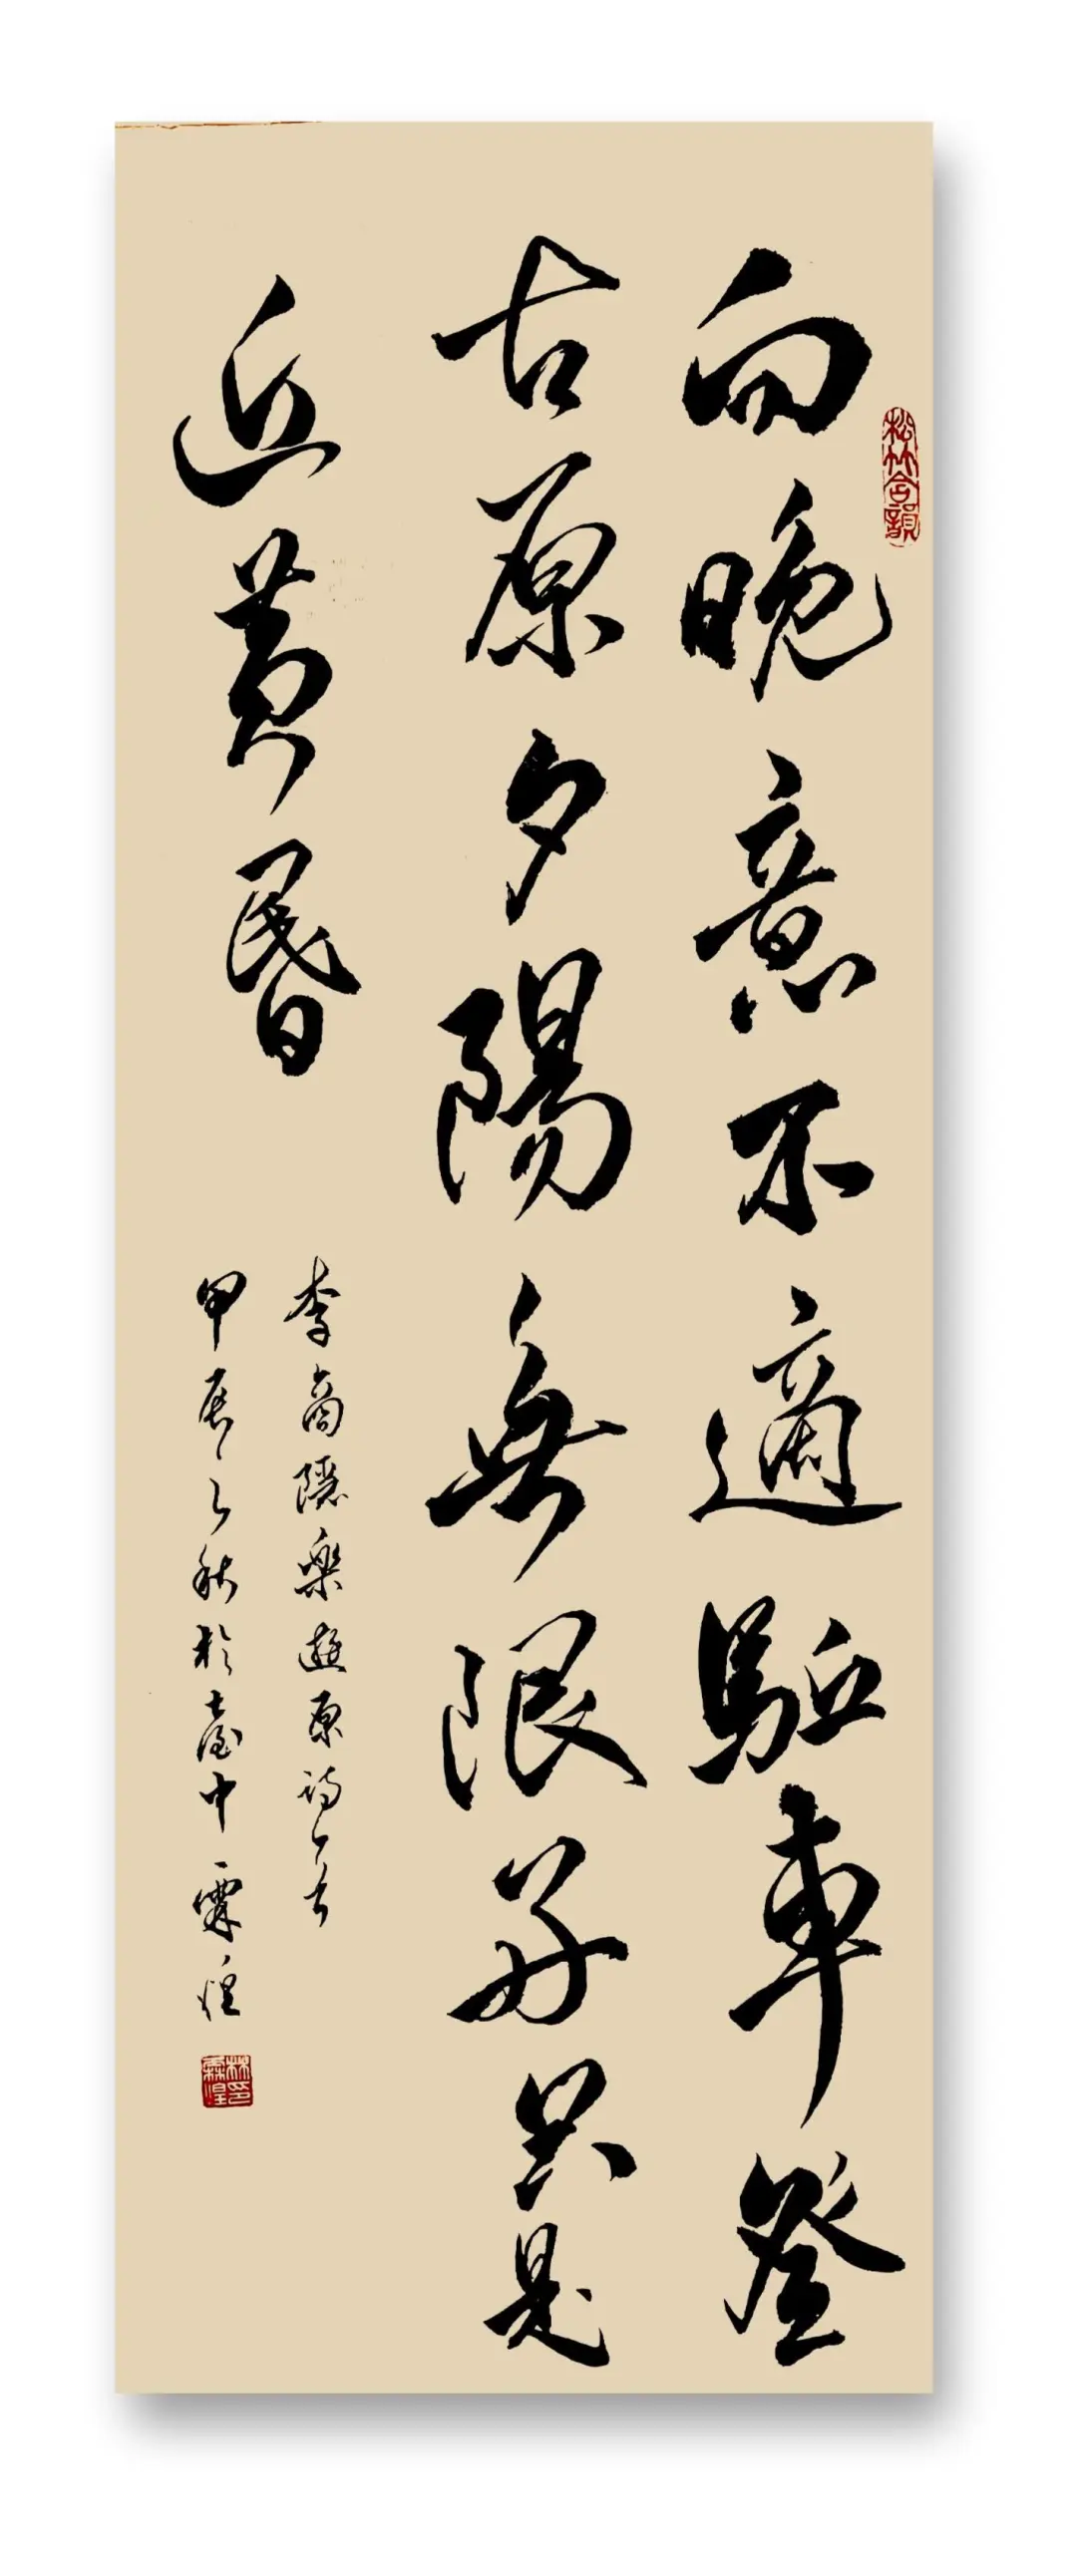 松竹含韻
向晚意不適駈車登
古原夕陽無限好只是
近黃昬
李商隱樂遊原詩一首
甲辰之秋於臺中霖煌
林印霖煌